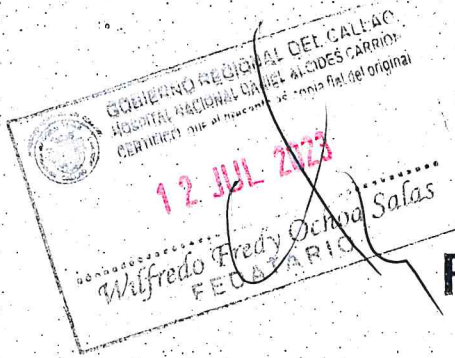 GOBIERNO REGIONAL DEL CALLAO
HOSPITAL NACIONAL DANIEL ALCIDES CARRION
CERTIFICO que el copia fiel del original
12 JUL 2023
Wilfredo Fredy Ochoa Salas
FEDATARIO